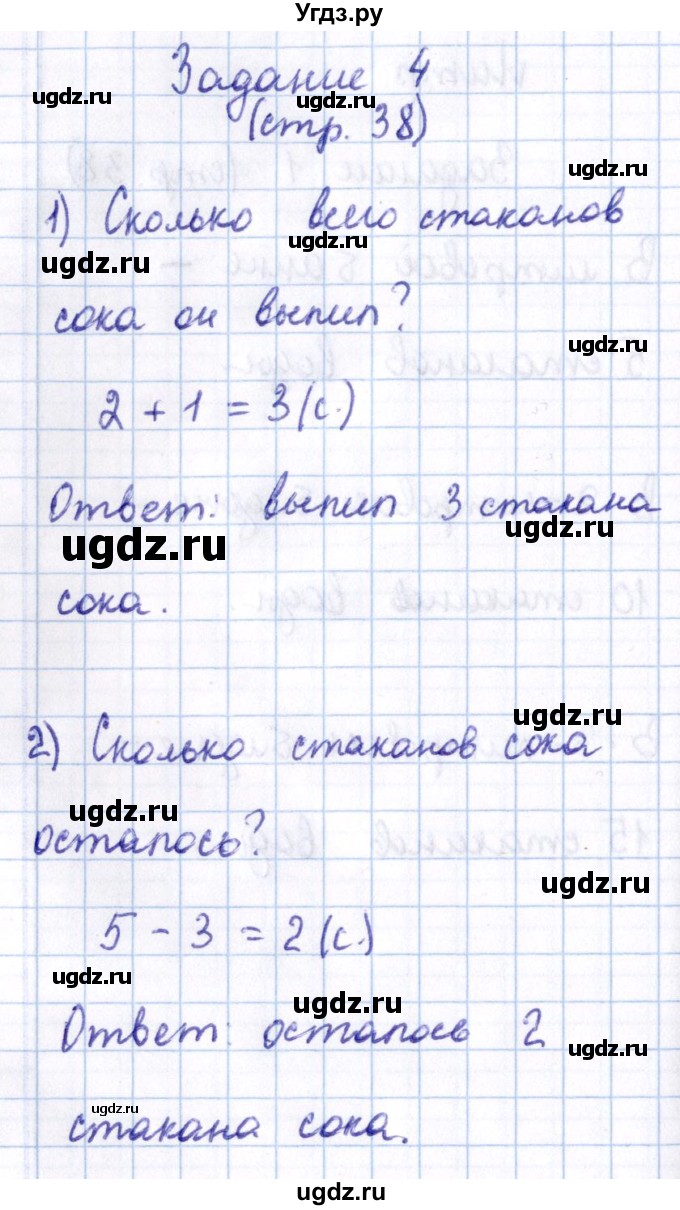 Угдз.ру
Задание 4
ugdz.ru ugdz.ru
(стр. 38)
ugdz.ru
1) Сколько всего стаканов
ugdz.ru ugdz.ru
сока он выпил?
ugdz.ru
2 + 1 = 3 (с.)
Ответ: выпил 3 стакана
ugdz.ru
ugdz.ru
сока.
ugdz.ru
2) Сколько стаканов сока
ugdz.ru
осталось?
ugdz.ru
5 - 3 = 2 (с.)
ugdz.ru
ugdz.ru
Ответ: осталось 2
ugdz.ru
ugdz.ru
стакана сока.
ugdz.ru